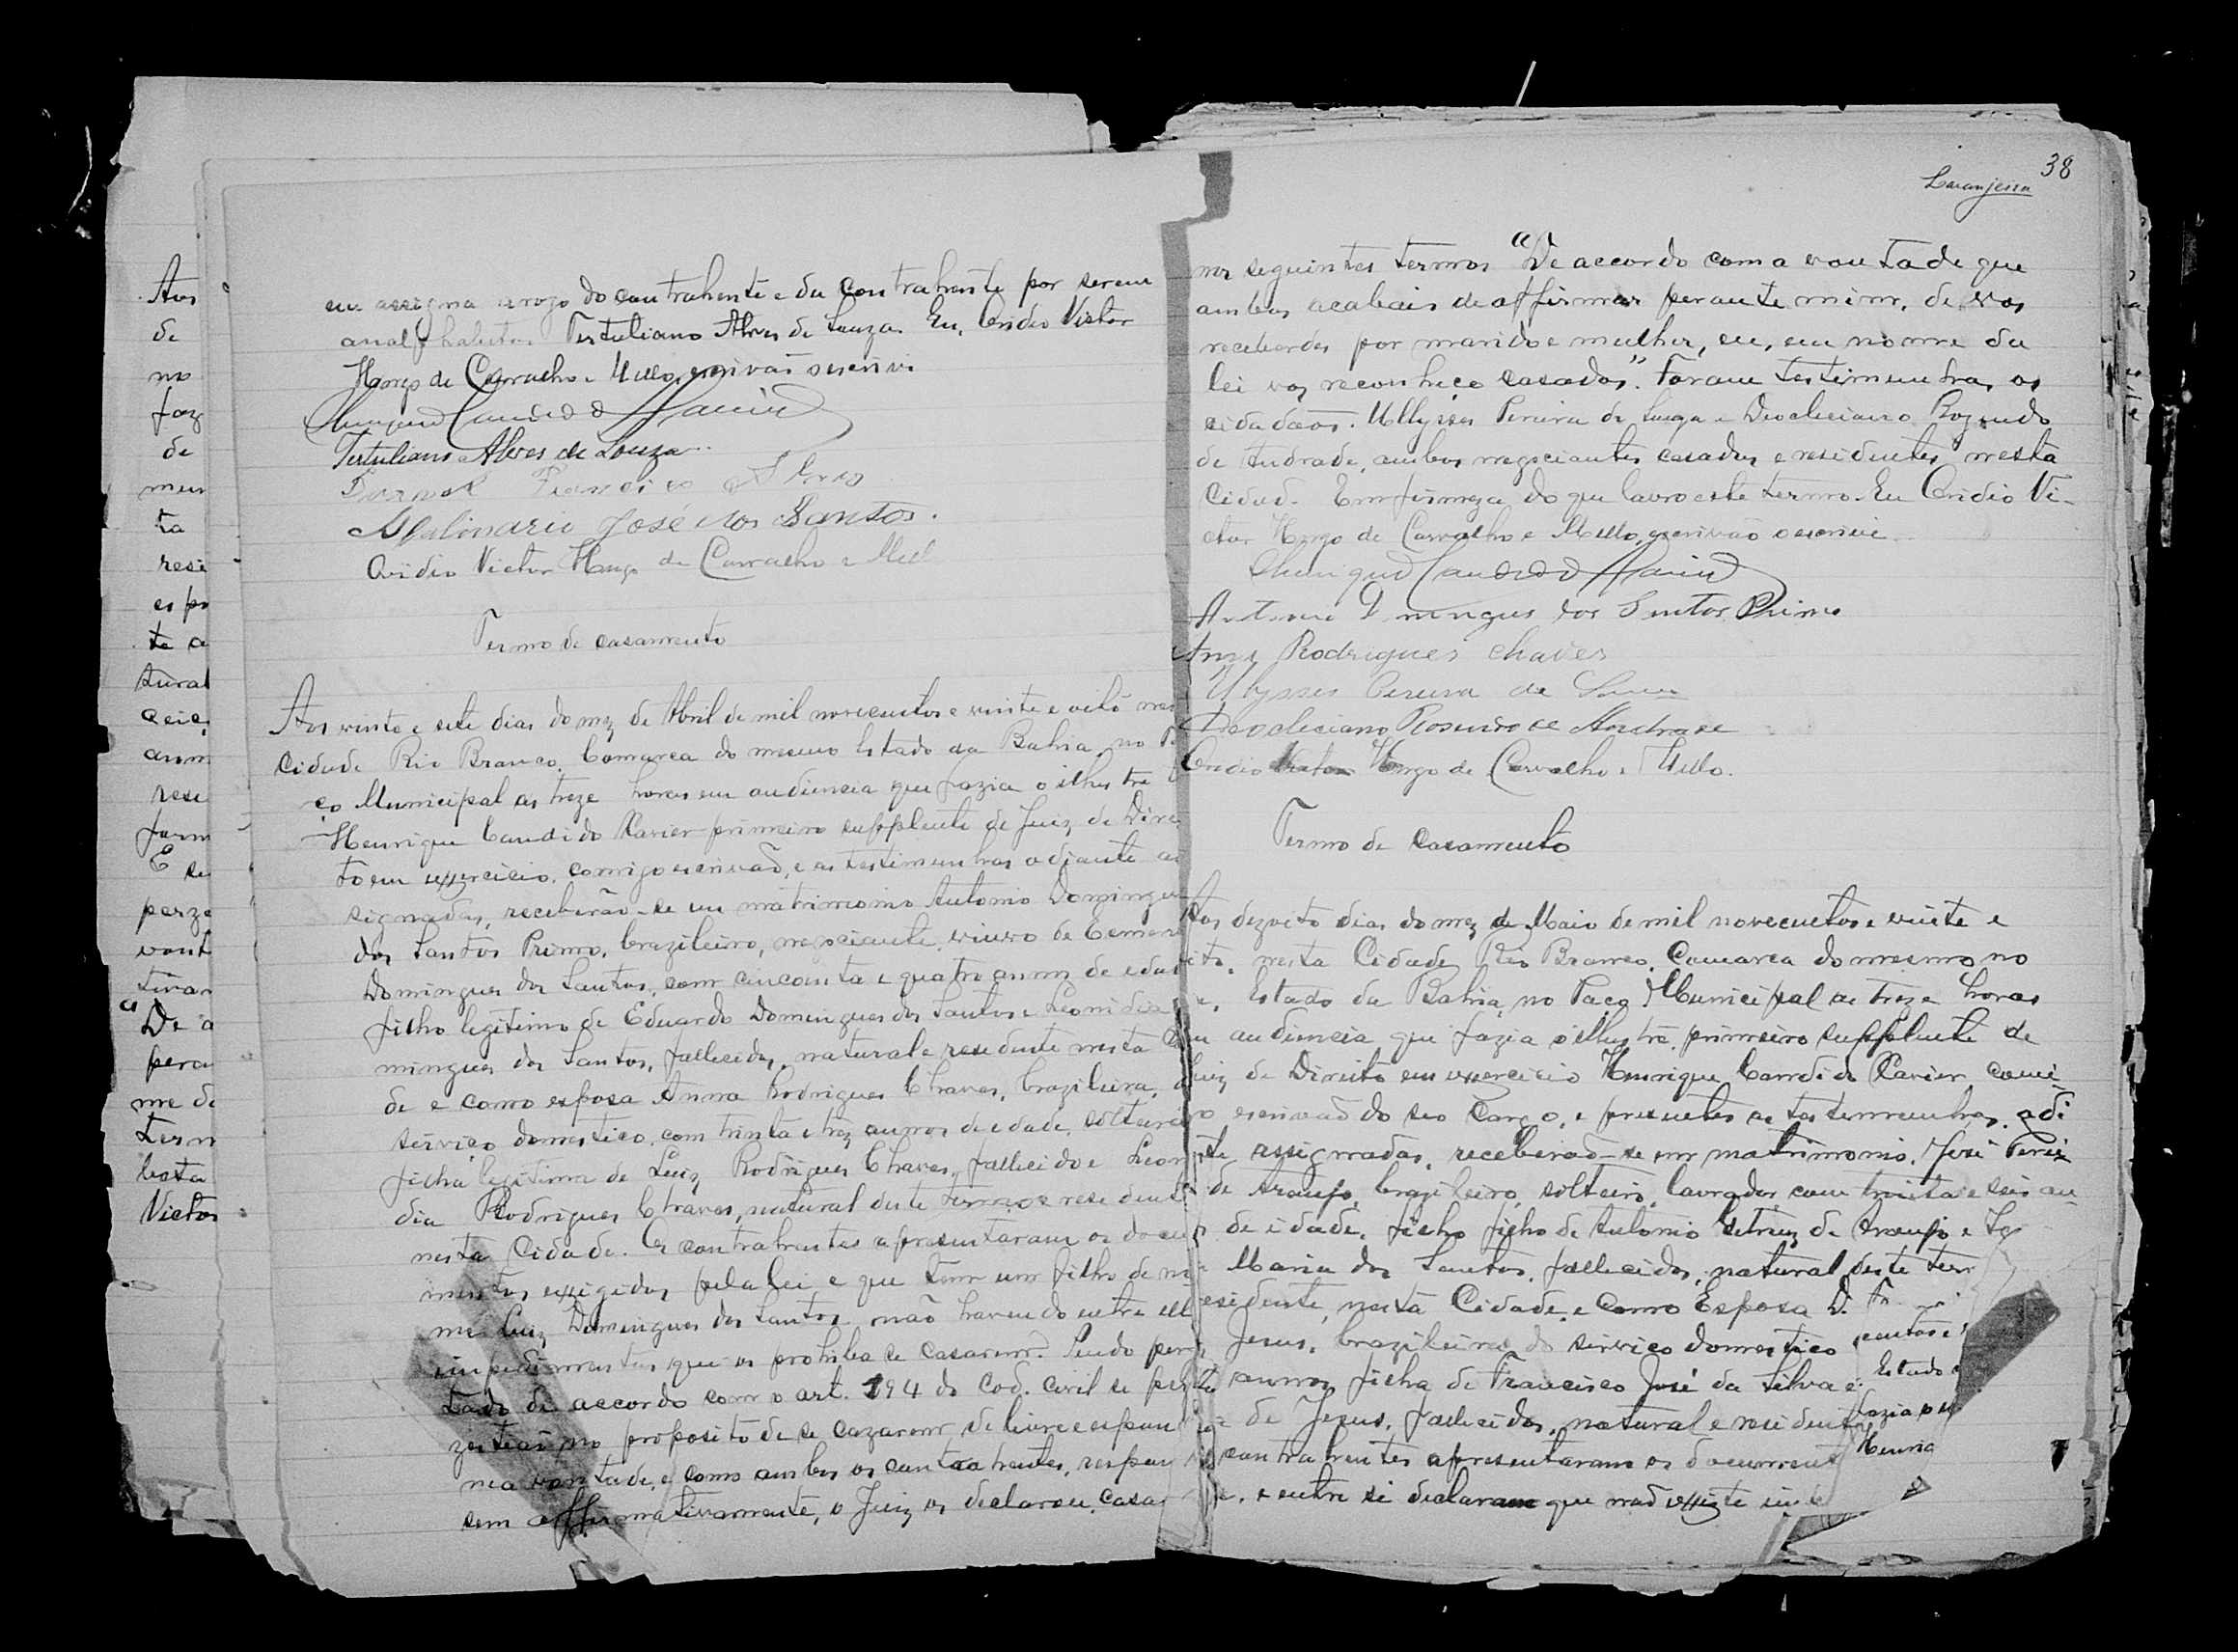 Aos
de
no
faz
de
men
ta
resi
es po
te a
tural
ceiç
ann
resi
form
E se
perze
vont
tivan
"De a
pera
me de
tern
lesta
Victor
em assigna a rogo do contrahente e da contrahente por serem
analphabetos Tertuliano Alves de Souza. Eu, Ovidio Victor
Hugo de Carvalho e Mello, escrivão o escrevi
Henrique Candido Xavier
Tertuliano Alves de Louza
Francisco Alves
José dos Santos.
Ovidio Victor Hugo de Carvalho e Mell
Termo de casamento
Aos vinte e sete dias do mez de Abril de mil novecentos e vinte e oito nes
Cidade Rio Branco, Comarca do mesmo Estado da Bahia, no Pa
ço Municipal as treze horas em audiencia que fazia o illustre
Henrique Candido Xavier primeiro supplente de Juiz de Dire
to em exercicio, comigo escrivão, e as testimunhas adiante as
signadas, receberão-se em matrimonio Antonio Domingue
dos Santos Primo, brazileiro, negociante, viuvo de
Domingues dos Santos, com cincoenta e quatro annos de edad
filho legitimo de Eduardo Domingues dos Santos e Leonidia
mingues dos Santos, fallecidos, natural e residente nesta Ci
de e como esposa Anna Rodrigues Chaves, brazileira, d
serviço domestico, com trinta e trez annos de edade, solteira
filha legitima de Luiz Rodrigues Chaves, fallecido e Leon
dia Rodrigues Chaves, natural deste termo e residente
nesta Cidade. Os contrahentes apresentaram os docu
mentos exigidos pela lei e que tem um filho de no
me Luiz Domingues dos Santos, não havendo entre ell
impedimentos que os prohiba se casarem. Sendo perg
tado de accordo com o art. 194 do Cod. Civil se per
zestiam no proposito de se cazarem de livre e espon
nea vontade, e como ambos os contrahentes, respon
sem affirmativamente, o Juiz os declarou casa
38
Laranjeira
nos seguintes termos "De accordo com a vontade que
ambos acabais de affirmar perante mim, de vos
receberdes por marido e mulher, eu, em nome da
lei vos reconheço casados". Foram testimunhas os
cidadãos. Ullysses Pereira de Souza e Deocleciano Rozendo
de Andrade, ambos negociantes casados e residentes nesta
Cidade. Em firmeza do que lavro este termo. Eu Ovidio Vi-
ctor Hugo de Carvalho e Mello, escrivão o escrivi
Henrique Candido Xavier
Antonio Domingues dos Santos Primo
Anna Rodrigues Chaves
Ulysses Pereira de Souza
Deocleciano Rosendo de Andrade
Ovidio Victor Hugo de Carvalho e Mello.
Termo de casamento
Aos dezoito dias do mez de Maio de mil novecentos e vinte e
oito, nesta Cidade Rio Branco, Comarca do mesmo no
me, Estado da Bahia, no Paço Municipal as treze horas
em audiencia que fazia o illustre primeiro supplente de
Juiz de Direito em exercicio Henrique Candido Xavier comi
go escrivão do seo cargo, e presentes as testemunhas, adi
ante assignadas, receberão-se em matrimonio, José
de Araujo, brazileiro, solteiro, lavrador, com trinta e seis an
os de idade, filho filho de Antonio de Araujo e
Maria dos Santos, fallecidos, natural deste ter
residente, nesta Cidade, e como Esposa D.
Jesus, brazileira, do serviço domestico
annos, filha de Francisco José da Silva e
de Jesus, fallecidos, natural e resident
contrahentes apresentaram os document
e entre si declaram que não existe im
centos e
Estado
fazia o
Henriq